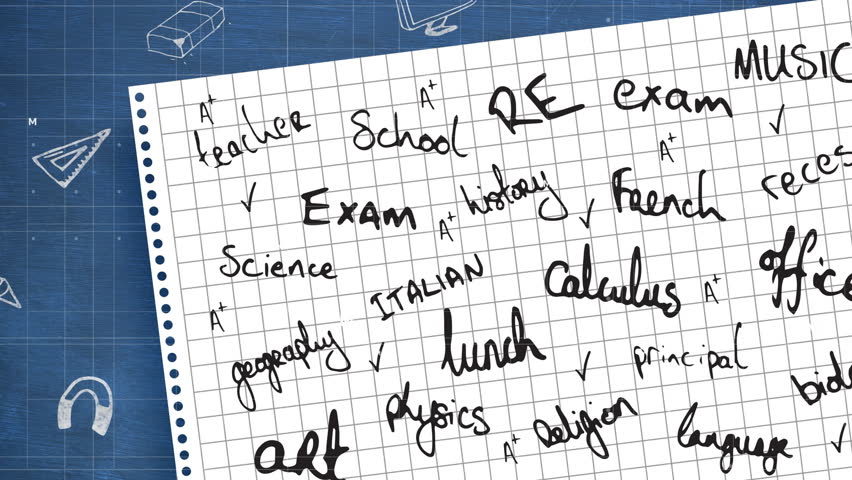 MUSIC
A+
A+
RE
exam
teacher
School
A+
Exam
history
French
A+
Science
ITALIAN
Calculus
A+
office
A+
geography
lunch
principal
physics
Religion
A+
language
art
M